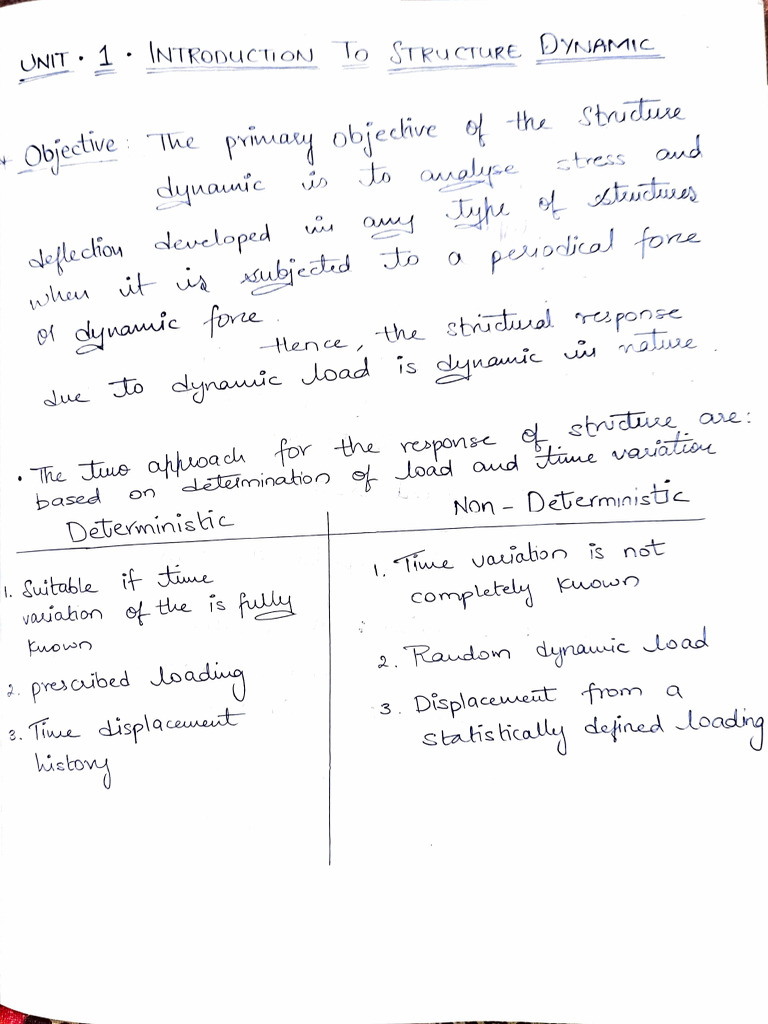 UNIT · 1 · INTRODUCTION TO STRUCTURE DYNAMIC
Objective: The primary objective of the structure
dynamic is to analyse stress and
deflection developed in any type of structures
when it is subjected to a periodical force
or dynamic force.
Hence, the structural response
due to dynamic load is dynamic in nature.
• The two approach for the response of structure are:
based on determination of load and time variation
Deterministic
1. Suitable if time
variation of the is fully
known
2. prescribed loading
3. Time displacement
history
Non - Deterministic
1. Time variation is not
completely known
2. Random dynamic load
3. Displacement from a
statistically defined loading